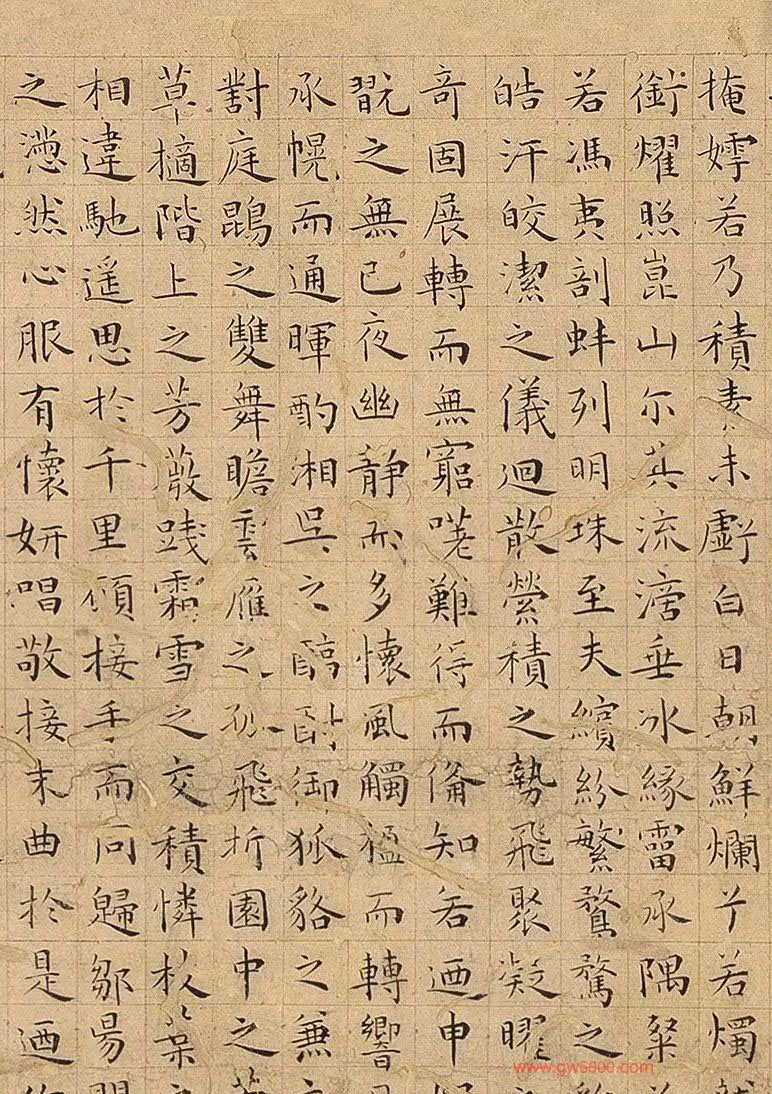 掩嫮若乃積素未虧白日朝鮮爛兮若燭
銜耀照崑山尔其流滴垂冰緣霤承隅粲
若馮夷剖蚌列明珠至夫繽紛繁騖驚之
皓汗皎潔之儀迴散縈積之勢飛聚凝曜
奇固展轉而無窮嗟難得而俻知若迺申
翫之無已夜幽静而多懷風觸楹而轉響
承幌而通暉酌湘吳之醇酎御狐貉之兼
對庭鵾之雙舞瞻雲雁之孤飛折園中之
草摘階上之芳薇踐霜雪之交積憐枝葉
相違馳遥思於千里願接手而同歸鄒陽
之懣然心服有懷妍唱敬接末曲於是迺